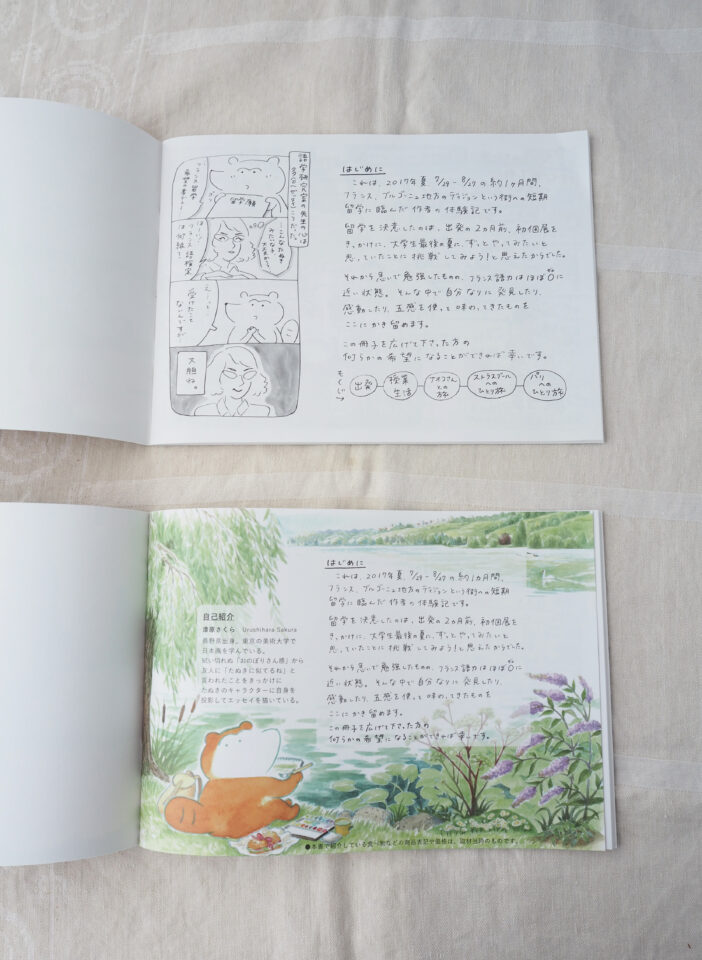 語学研究室の先生の心は
フランス留学
留学願
こんなたぬき
みたいな子
フランス語検定
は何級？
えーっと
受けたこと
ないんですが
大胆ね。
はじめに
これは、2017年夏 7/29-8/27の約1ヶ月間、
フランス、ブルゴーニュ地方のディジョンという街への短期
留学に臨んだ作者の体験記です。
留学を決意したのは、出発の2カ月前、初個展を
きっかけに、大学生最後の夏に、「ずっとやってみたいと
思っていたことに挑戦してみよう!と思えたからでした。
それから急いで勉強したものの、フランス語力はほぼ0に
近い状態。そんな中で自分なりに発見したり、
感動したり、五感を使って味わってきたものを
ここにかき留めます。
この冊子を広げて下さった方の
何らかの希望になることができれば幸いです。
もくじ→
出発
授業生活
ナオコさんとの旅
ストラスブールへのひとり旅
パリへのひとり旅
はじめに
これは、2017年夏、7/29-8/27の約1カ月間、
フランス、ブルゴーニュ地方のディジョンという街への短期
留学に臨んだ作者の体験記です。
留学を決意したのは、出発の2カ月前、初個展を
きっかけに、大学生最後の夏に、「ずっとやってみたいと
思っていたことに挑戦してみよう!と思えたからでした。
それから急いで勉強したものの、フランス語力はほぼ0に
近い状態。そんな中で自分なりに発見したり、
感動したり、五感を使って味わってきたものを
ここにかき留めます。
この冊子を広げて下さった方の
何らかの希望になることができれば幸いです。
自己紹介
漆原さくら Urushihara Sakura
長野県出身。東京の美術大学で
日本画を学んでいる。
拭い切れぬ「おのぼりさん感」から
友人に「たぬきに似てるね」と
言われたことをきっかけに
たぬきのキャラクターに自身を
投影してエッセイを描いている。
●本書で紹介している食べ物などの商品表記や価格は、取材当時のものです。